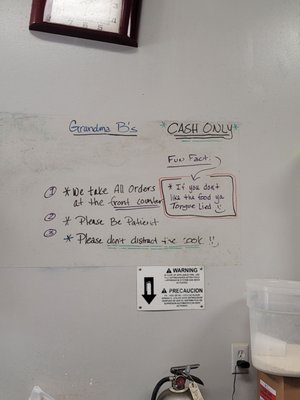 Grandma B's
*CASH ONLY*
Fun Fact:
* If you don't
like the food ya
Tongue Lied
① * We take All Orders
at the front counter
② * Please Be Patient
③ * Please don't distract the cook. !!
WARNING
PRECAUCION